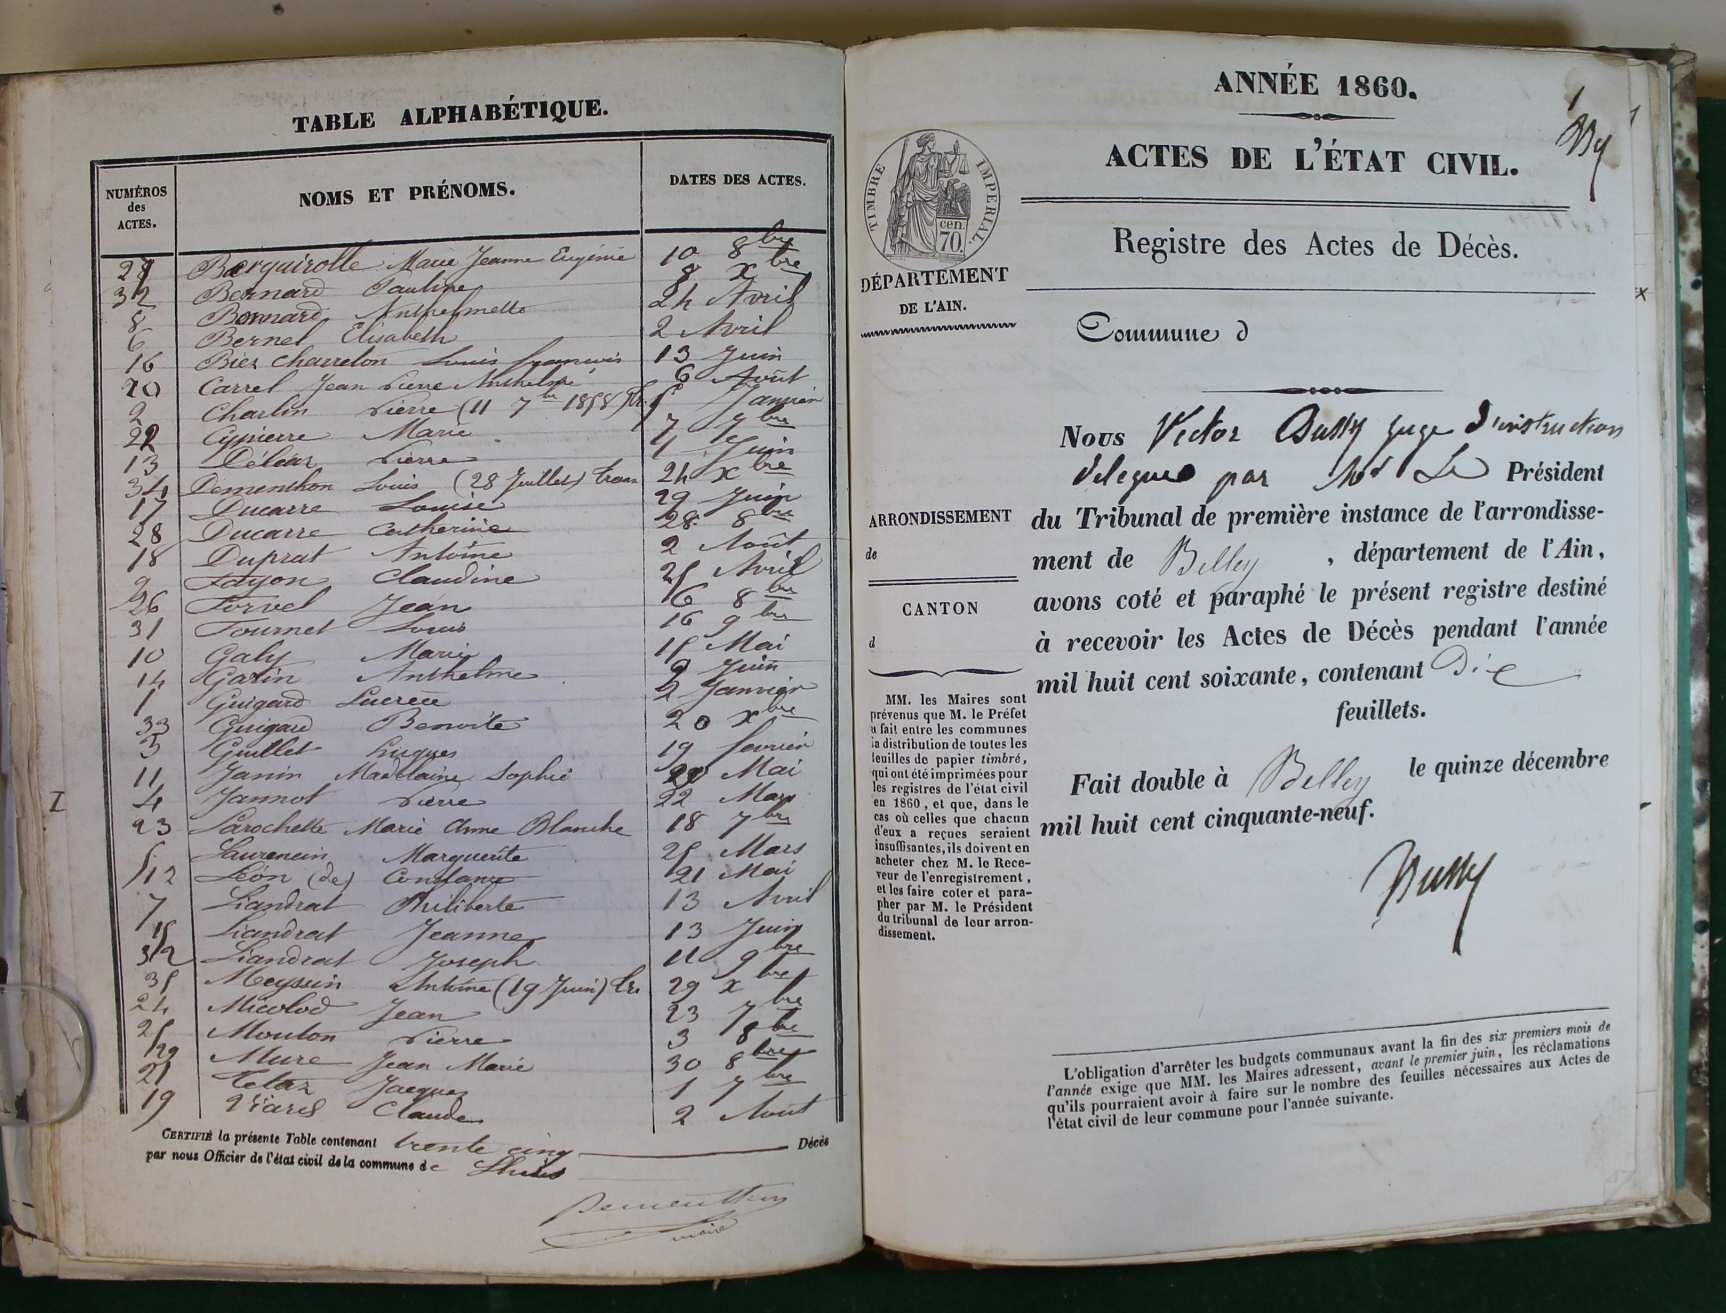 TABLE ALPHABÉTIQUE.
NUMÉROS des ACTES.
NOMS ET PRÉNOMS.
DATES DES ACTES.
27 Barquirolle Marie Jeanne Eugénie 10 8bre
32 Bernard Pauline 8 Xbre
8 Bonnard Anthelmette 24 Avril
6 Bernel Elisabeth 2 Avril
16 Bier Charreton Louis 13 Juin
20 Carrel Jean Pierre Anthelme 6 Août
2 Charlin Pierre (11 7bre 1858) Janvier
22 Cypierre Marie 7 7bre
13 Déléaz Pierre 4 Juin
34 Dementhon Louis (28 Juillet) tran 24 Xbre
17 Ducarre Louise 29 Juin
28 Ducarre Catherine 28 8bre
18 Duprat Antoine 2 Août
9 Fayon Claudine 25 Avril
26 Forvel Jean 6 8bre
31 Fournet Louis 16 9bre
10 Galy Marie 15 Mai
14 Garin Anthelme 9 Juin
1 Guigard Lucrèce 2 Janvier
33 Guigard Benoite 20 Xbre
3 Guillet Hugues 19 février
11 Janin Madelaine Sophie 20 Mai
4 Jannot Pierre 22 Mars
23 Larochette Marie Anne Blanche 18 7bre
5 Laurencin Marguerite 25 Mars
12 Léon (de) Constance 21 Mai
7 Liandrat Philiberte 13 Avril
15 Liandrat Jeanne 13 Juin
Liandrat Joseph 11 9bre
35 Meyssin Antoine (19 Juin) tr. 29 Xbre
24 Micolod Jean 23 7bre
25 Mouton Pierre 3 8bre
29 Mure Jean Marie 30 8bre
21 Jacques 1 7bre
19 Claude 2 Août
CERTIFIÉ la présente Table contenant trente cinq Décès
par nous Officier de l'état civil de la commune de Lhuis
Dementhon
maire
ANNÉE 1860.
1
ACTES DE L'ÉTAT CIVIL.
Registre des Actes de Décès.
TIMBRE IMPÉRIAL.
cen.
70.
DÉPARTEMENT
DE L'AIN.
Commune d
Nous Victor Bussy juge d'instruction
délégué par Mr Le Président
du Tribunal de première instance de l'arrondisse-
ment de Belley, département de l'Ain,
avons coté et paraphé le présent registre destiné
à recevoir les Actes de Décès pendant l'année
mil huit cent soixante, contenant Dix
feuillets.
Fait double à Belley le quinze décembre
mil huit cent cinquante-neuf.
Bussy
ARRONDISSEMENT
de
CANTON
d
MM. les Maires sont
prévenus que M. le Préfet
a fait entre les communes
la distribution de toutes les
feuilles de papier timbré,
qui ont été imprimées pour
les registres de l'état civil
en 1860, et que, dans le
cas où celles que chacun
d'eux a reçues seraient
insuffisantes, ils doivent en
acheter chez M. le Rece-
veur de l'enregistrement,
et les faire coter et para-
pher par M. le Président
du tribunal de leur arron-
dissement.
L'obligation d'arrêter les budgets communaux avant la fin des six premiers mois de
l'année exige que MM. les Maires adressent, avant le premier juin, les réclamations
qu'ils pourraient avoir à faire sur le nombre des feuilles nécessaires aux Actes de
l'état civil de leur commune pour l'année suivante.